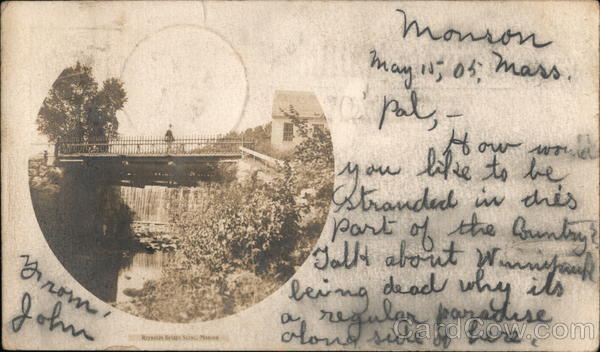 Monson
May 15, 05, Mass.
Pal, -
How would
you like to be
stranded in this
part of the Country?
Talk about Winnipauk
being dead why its
a regular paradise
along side of here.
From,
John
Reynolds Bridge Scene, Monson
CardCow.com